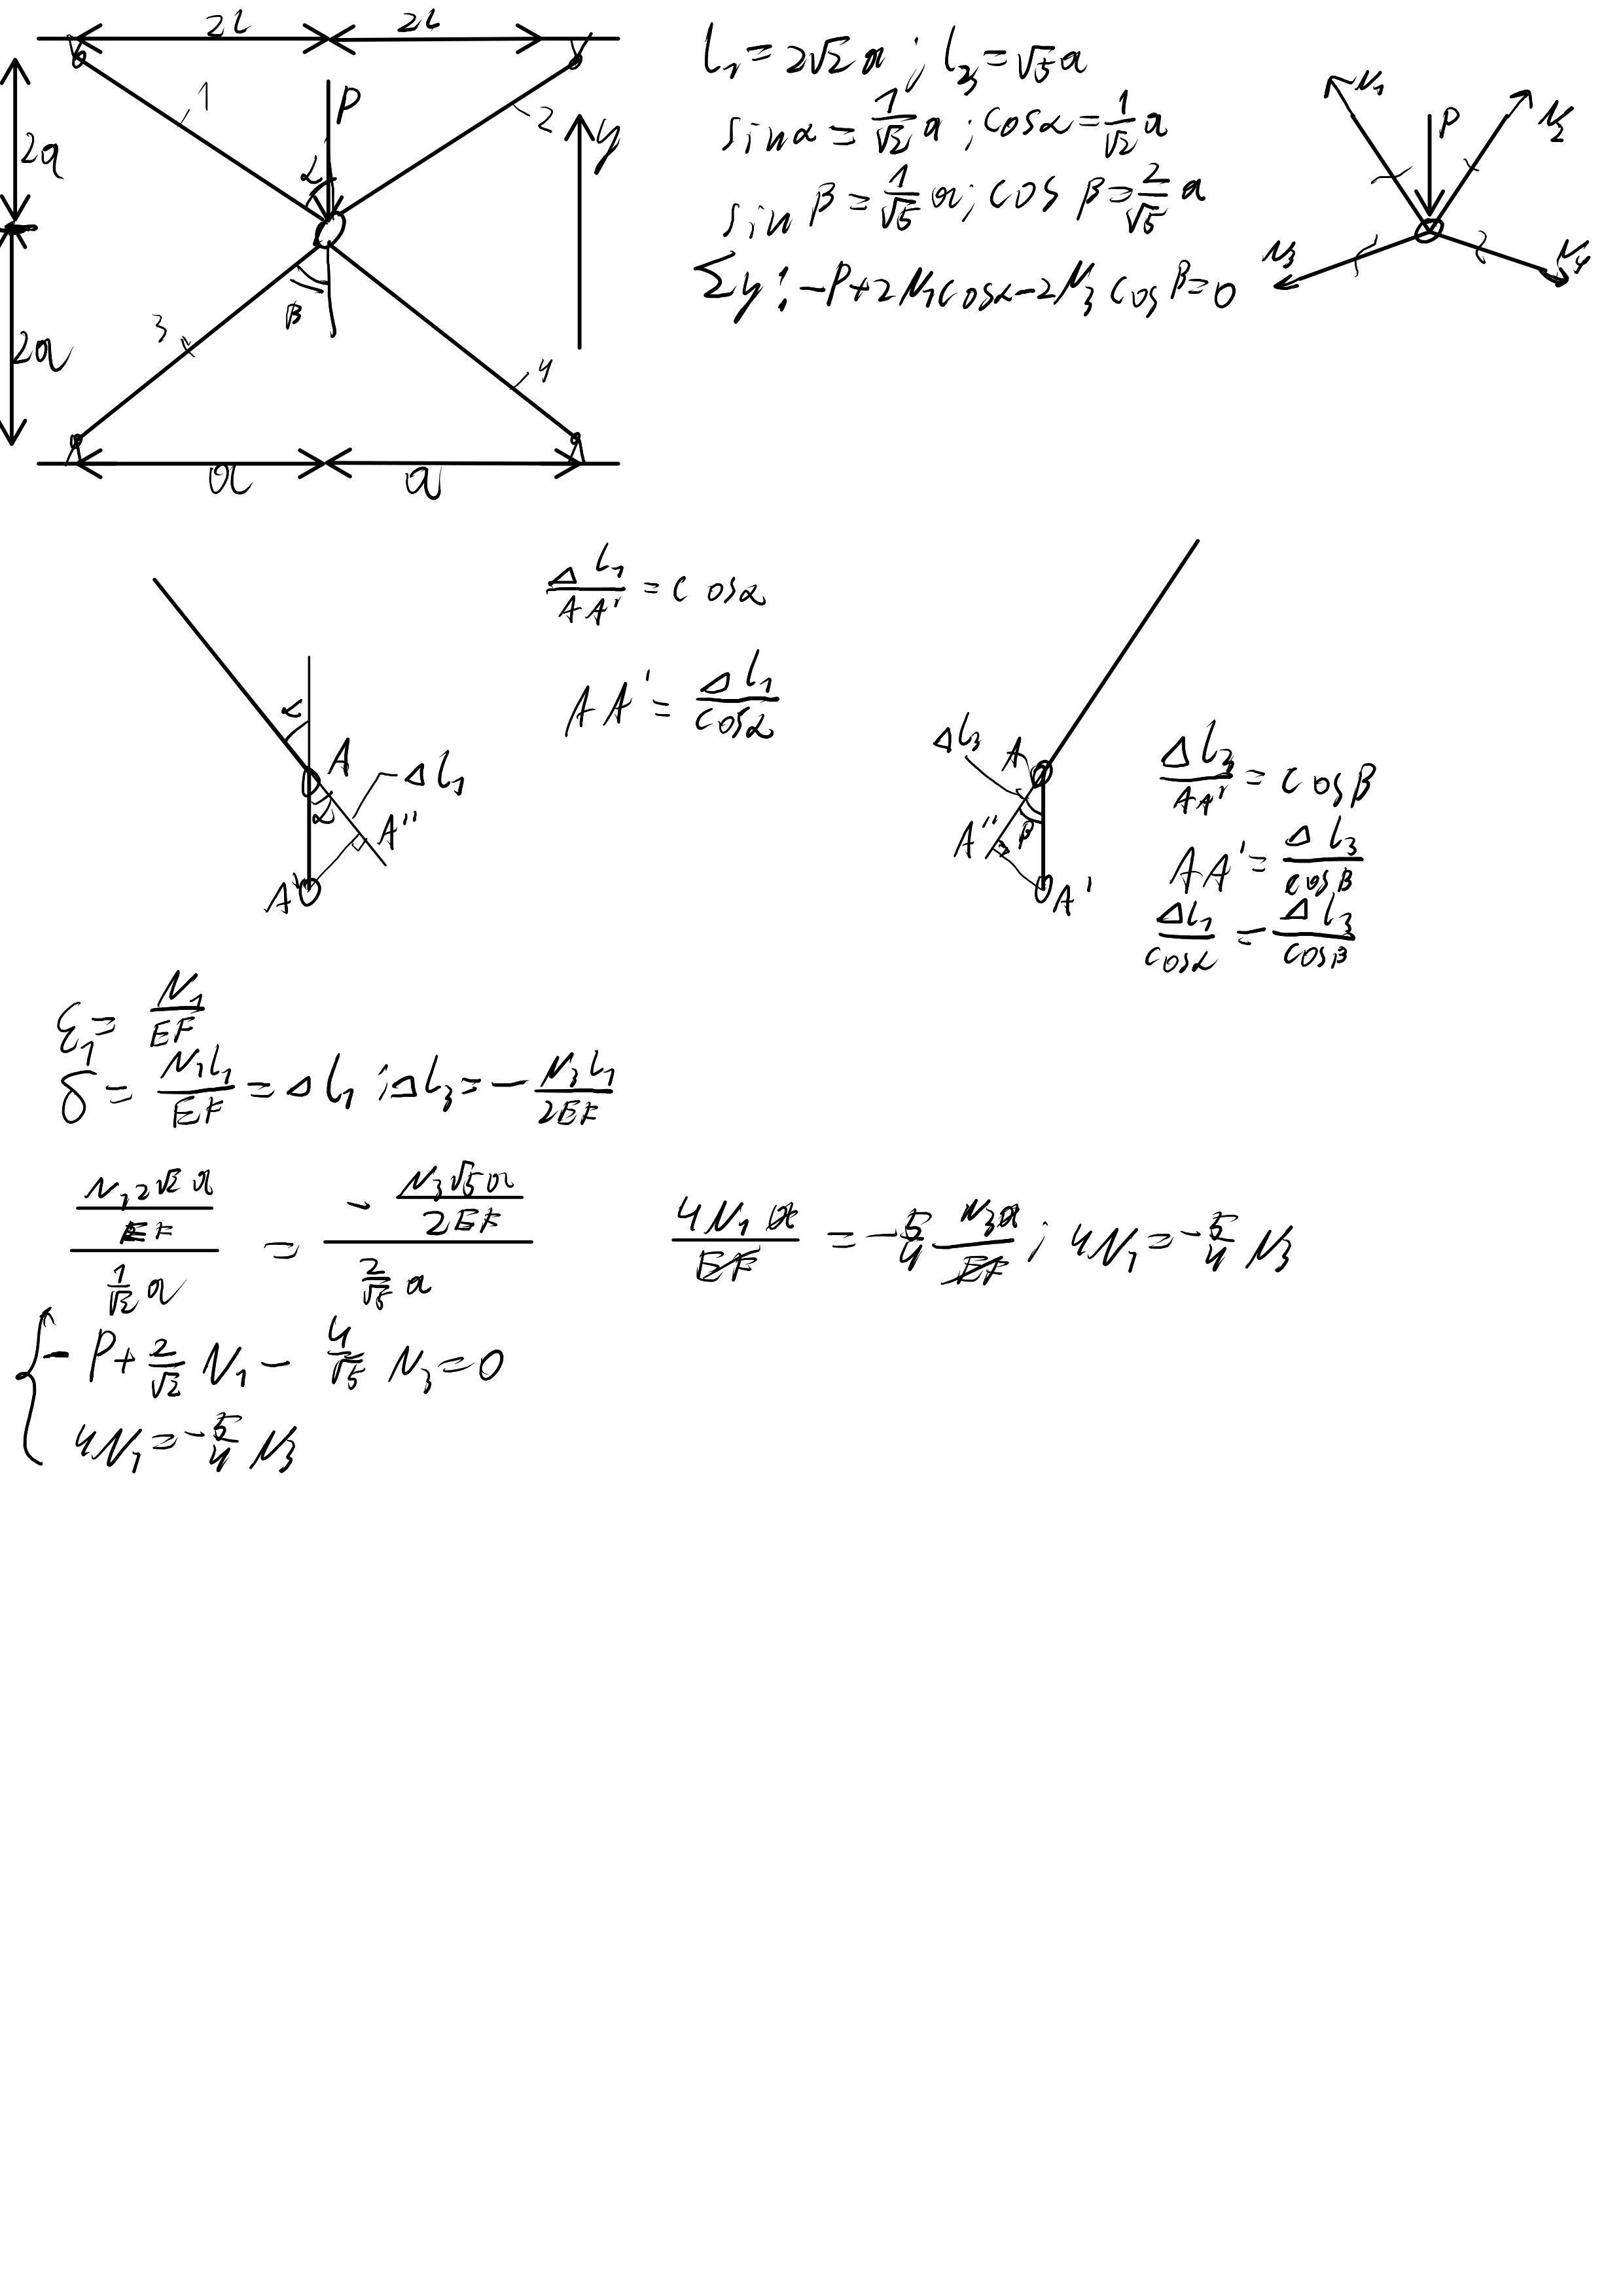 2l 2l
2a
1
P
2
y
α
2a
β
3
4
a a
l₁=2√2 a; l₃=√5a
sinα=1/√2 a; cosα=1/√2 a
sin β=1/√5 a; cos β=2/√5 a
Σy: -P+2N₁cosα-2N₃cosβ=0
N₁
P
N₂
N₃
N₄
α
A
Δl₁
α
A''
A'
Δl₁/AA' = cosα
AA'= Δl₁/cosα
Δl₃
A
A''
β
A'
Δl₃/AA' = cosβ
AA'= Δl₃/cosβ
Δl₁/cosα = Δl₃/cosβ
ε₁= N₁/EF
δ = N₁l₁/EF = Δl₁; Δl₃=- N₃l₁/2EF
(N₁2√2 a/EF)/(1/√2 a) = (- N₃√5a/2EF)/(2/√5 a)
4N₁a/EF = -5/4 N₃a/EF; 4N₁=-5/4 N₃
{ -P+2/√2 N₁- 4/√5 N₃=0
4N₁=-5/4 N₃